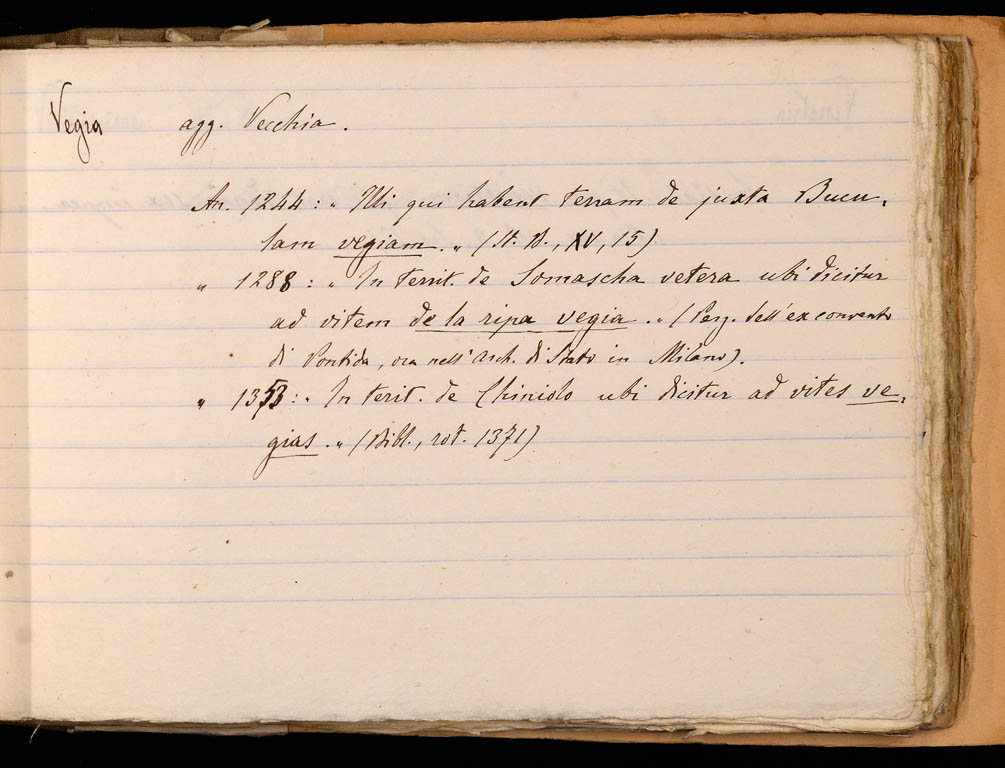 Vegia agg. Vecchia.
An. 1244 : „ Illi qui habent terram de juxta Bucu,
lam vegiam. „ (St. B., XV, 15)
„ 1288 : „ In territ. de Somascha vetera ubi dicitur
ad vitem de la ripa vegia . „ (Perg. dell' ex convento
di Pontida, ora nell' Arch. di Stato in Milano).
„ 1353 : „ In terit. de Chiniolo ubi dicitur ad vites ve,
gias . „ (Bibl., rot. 1371)